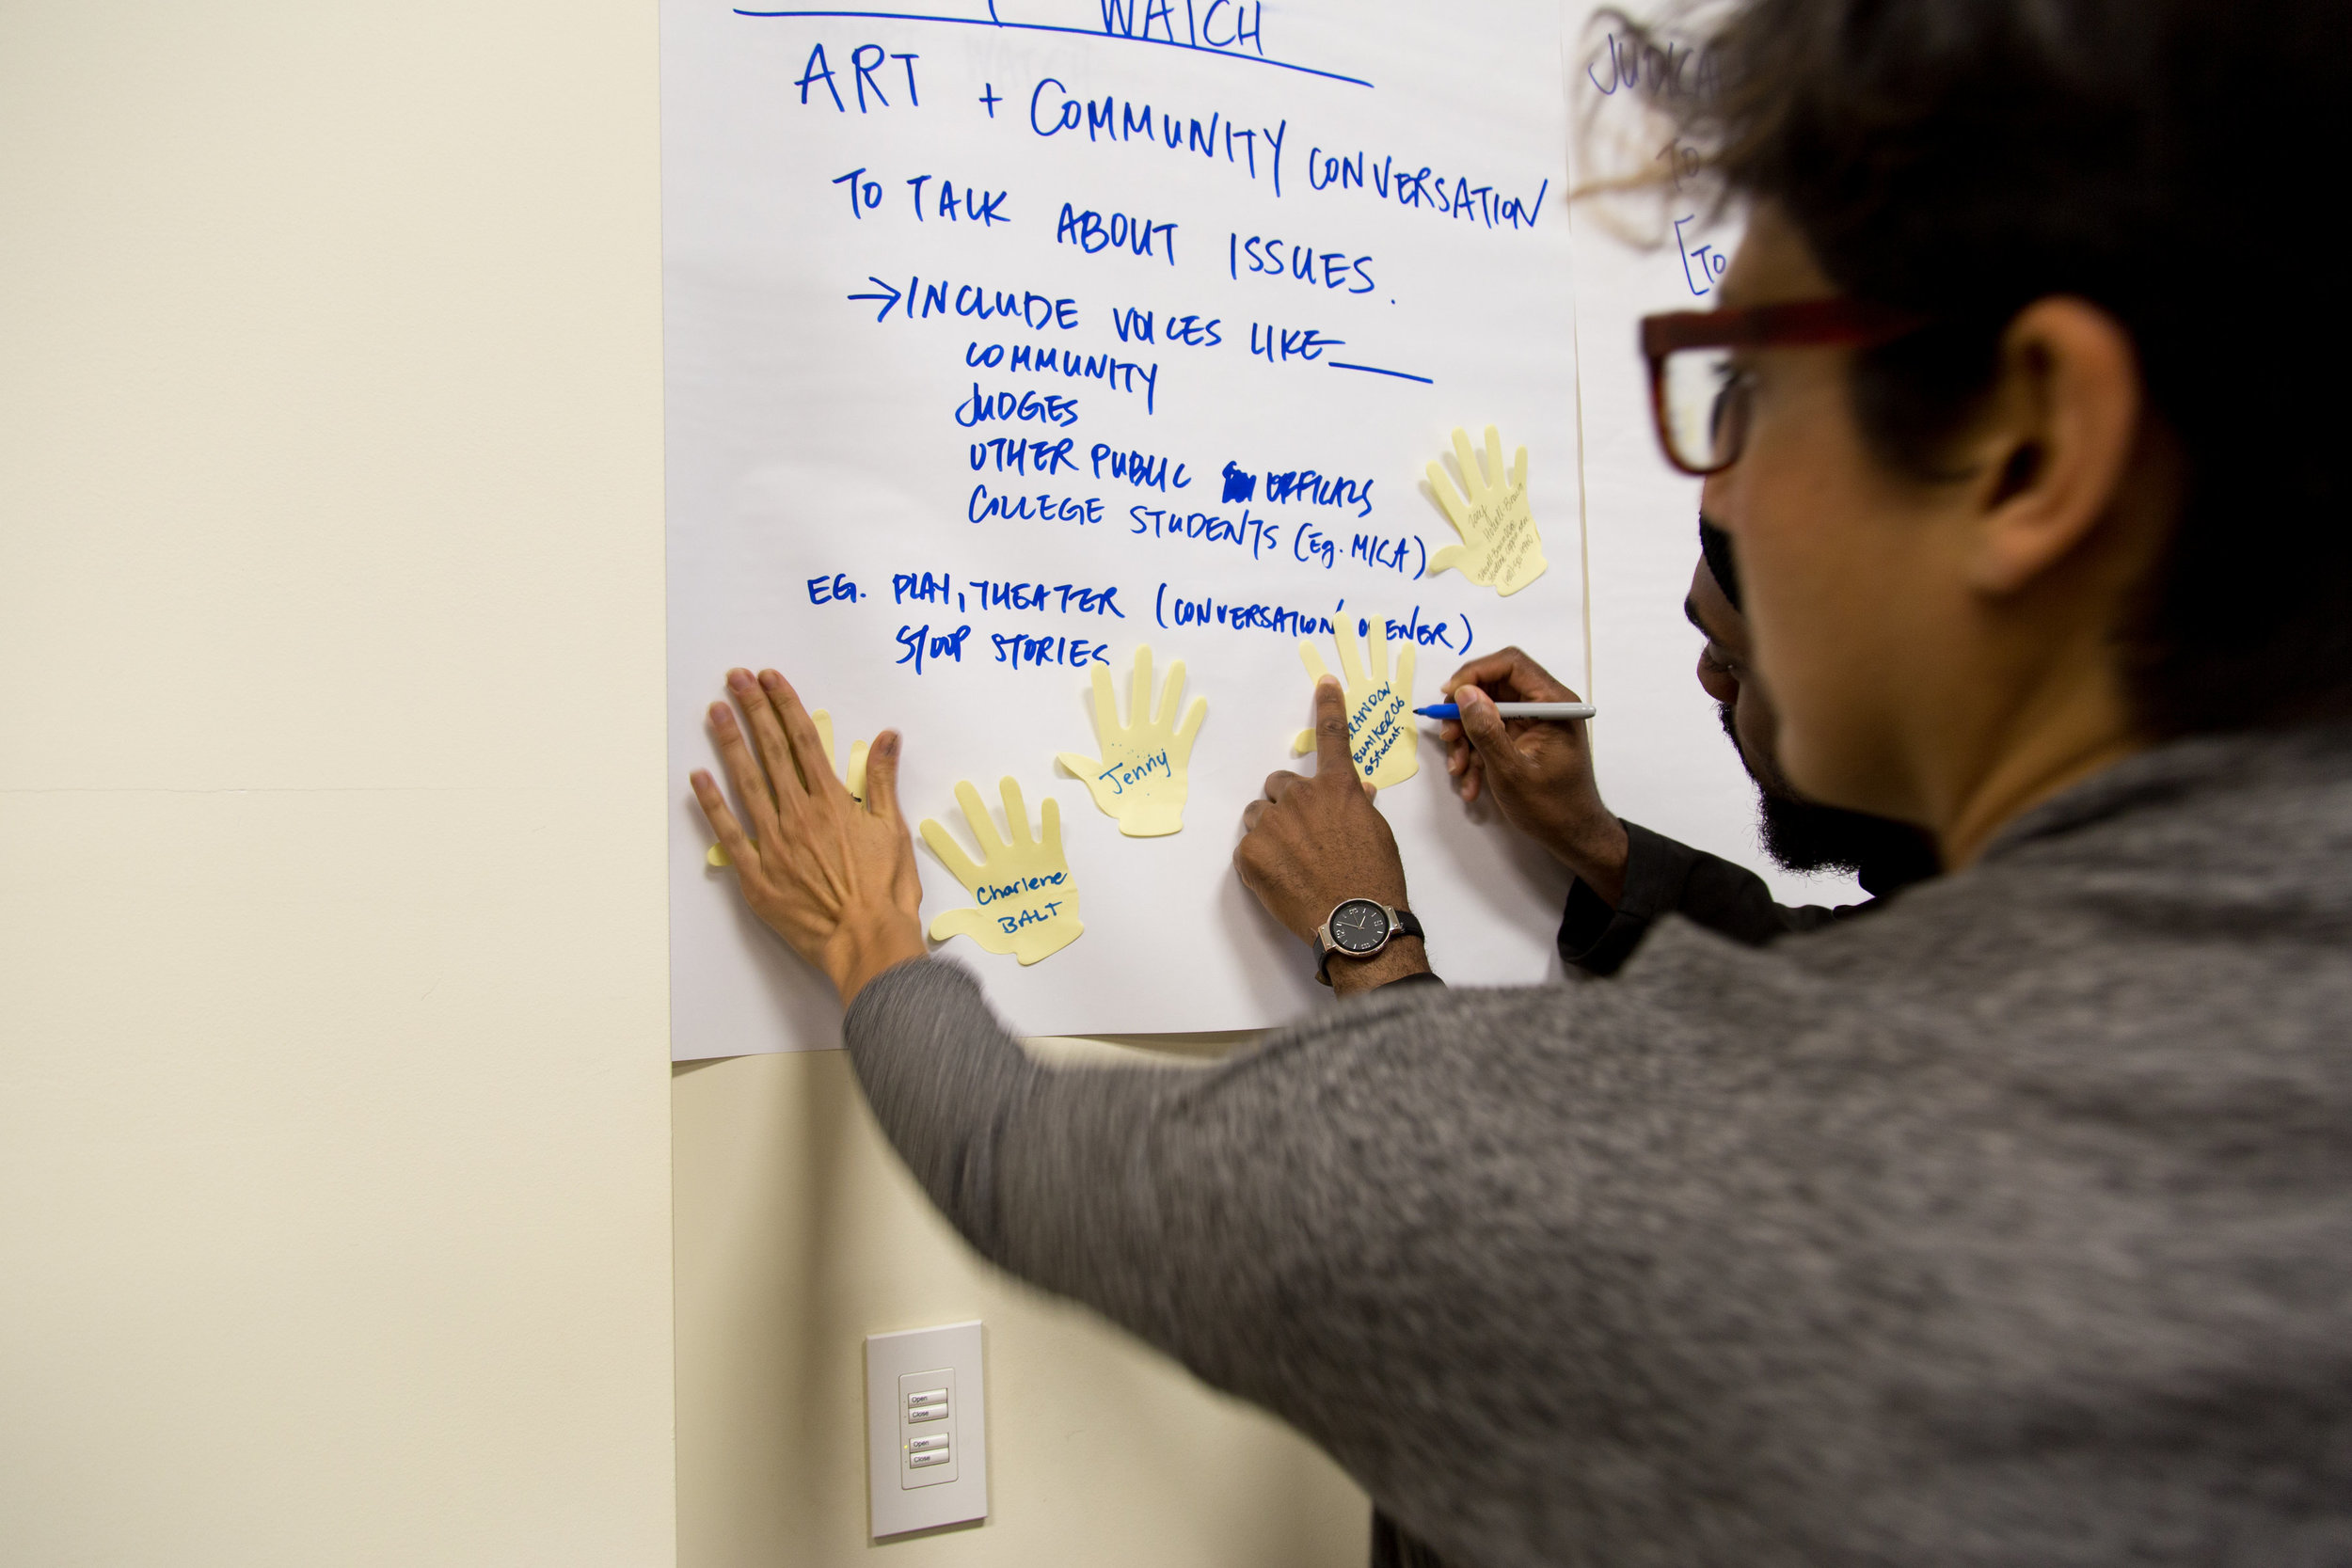 WATCH
ART + COMMUNITY CONVERSATION
TO TALK ABOUT ISSUES.
→ INCLUDE VOICES LIKE ____
COMMUNITY
JUDGES
OTHER PUBLIC OFFICIALS
COLLEGE STUDENTS (Eg. MICA)
EG. PLAY, THEATER (CONVERSATION OPENER)
STOOP STORIES
Jenny
Charlene
BALT
BRANDON
BUNKER06
@student.
TO
[TO
Open
Close
Open
Close